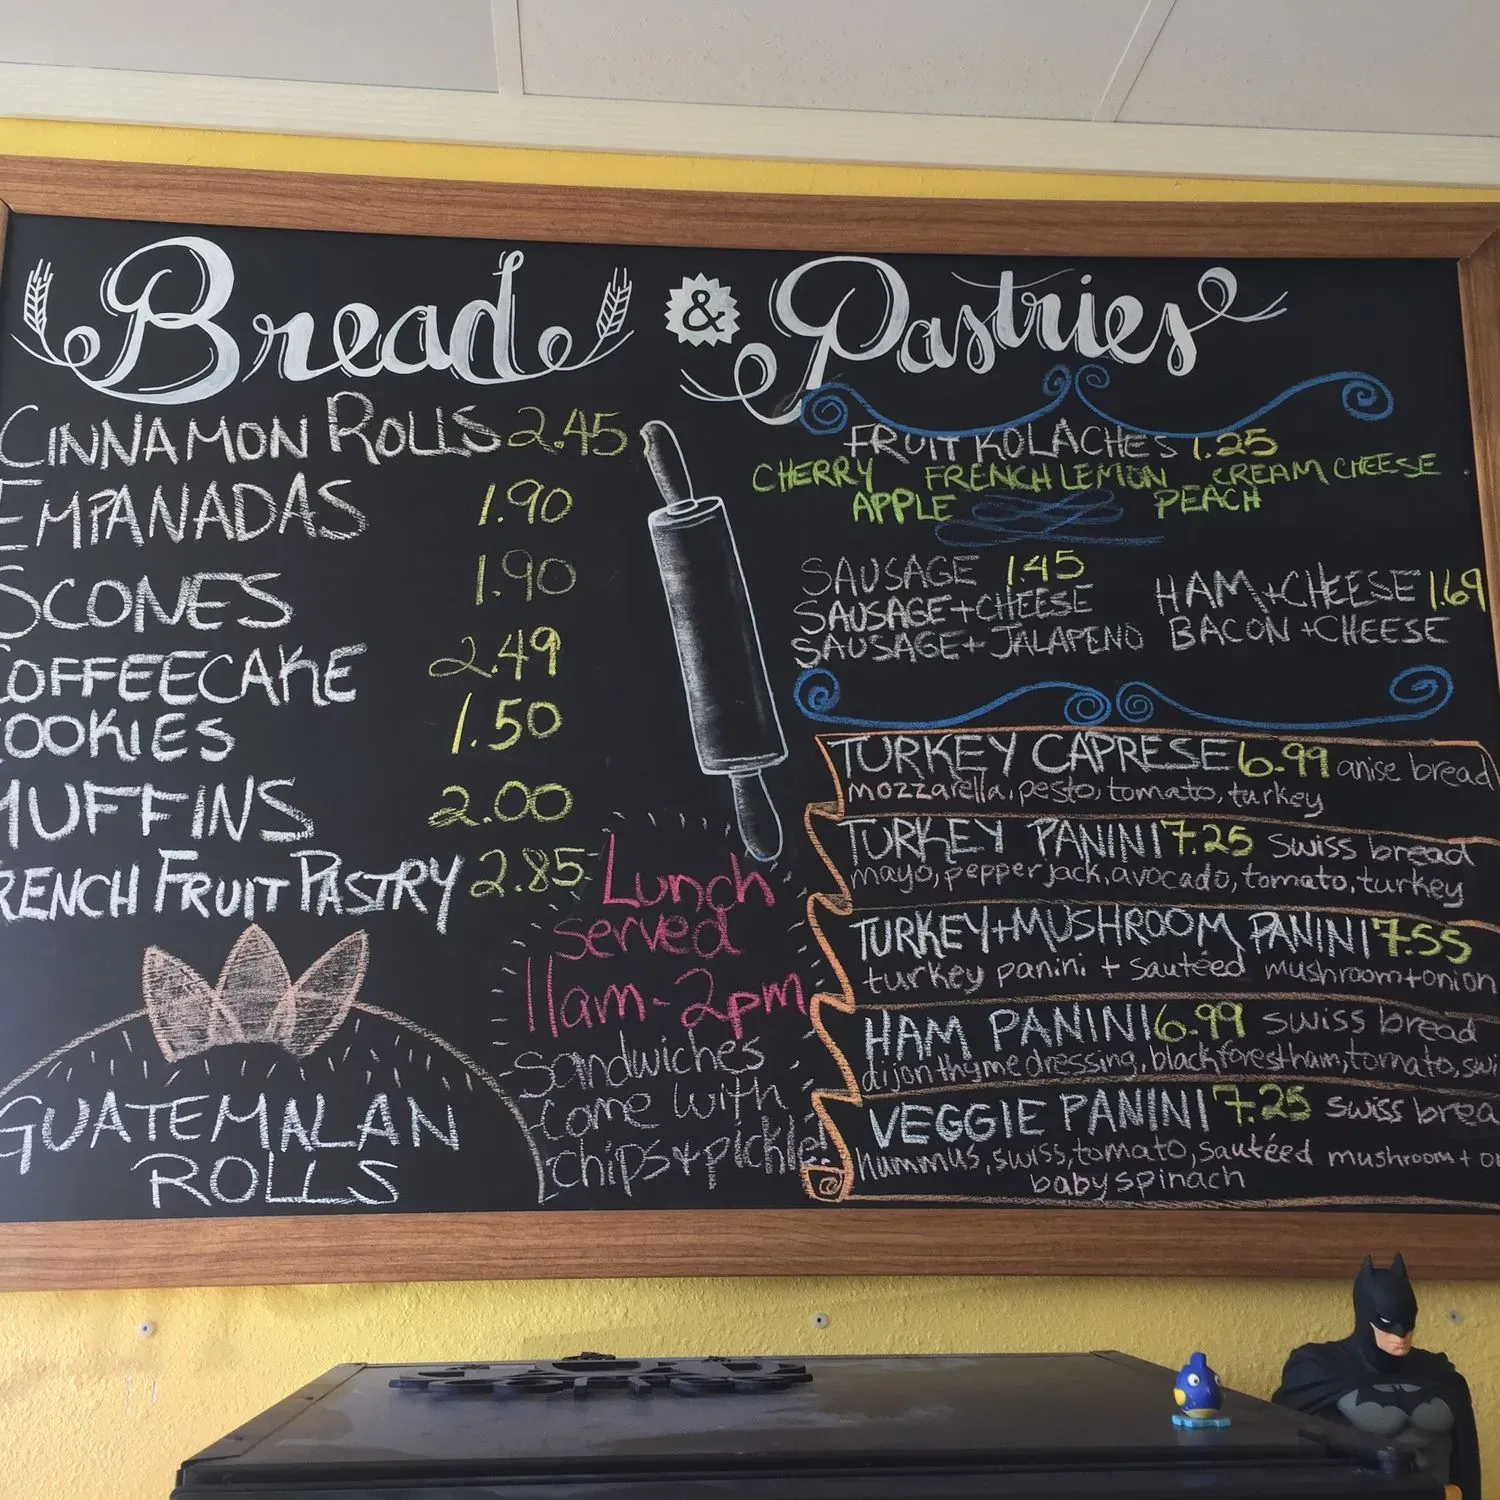 Bread & Pastries
CINNAMON ROLLS 2.45
EMPANADAS 1.90
SCONES 1.90
COFFEECAKE 2.49
COOKIES 1.50
MUFFINS 2.00
FRENCH FRUIT PASTRY 2.85
GUATEMALAN
ROLLS
Lunch
served
11am-2pm
Sandwiches
come with
chips + pickle!
FRUIT KOLACHES 1.25
CHERRY FRENCH LEMON CREAM CHEESE
APPLE PEACH
SAUSAGE 1.45
SAUSAGE + CHEESE
SAUSAGE + JALAPENO
HAM + CHEESE 1.69
BACON + CHEESE
TURKEY CAPRESE 6.99 anise bread
mozzarella, pesto, tomato, turkey
TURKEY PANINI 7.25 swiss bread
mayo, pepper jack, avocado, tomato, turkey
TURKEY + MUSHROOM PANINI 7.55
turkey panini + sautéed mushroom + onion
HAM PANINI 6.99 swiss bread
dijon thyme dressing, black forest ham, tomato, swi
VEGGIE PANINI 7.25 swiss brea
hummus, swiss, tomato, sautéed mushroom + o
baby spinach